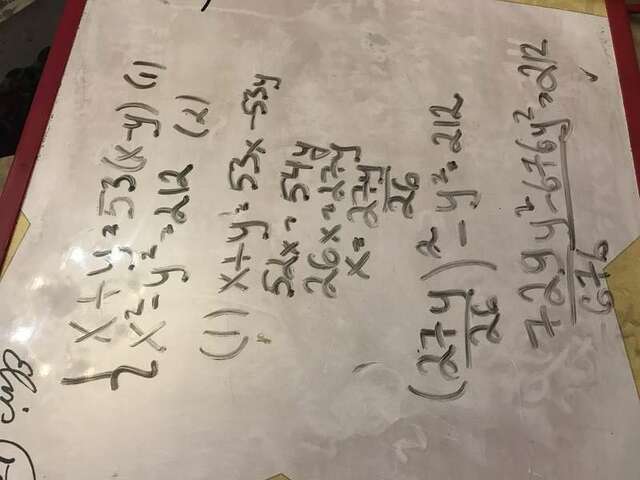 x+y=53(x-y) (1)
x²-y²=212 (2)
(1) x+y=53x-53y
52x=54y
26x=27y
x=27y/26
(27y/26)²-y²=212
(729y²-676y²)/676=212